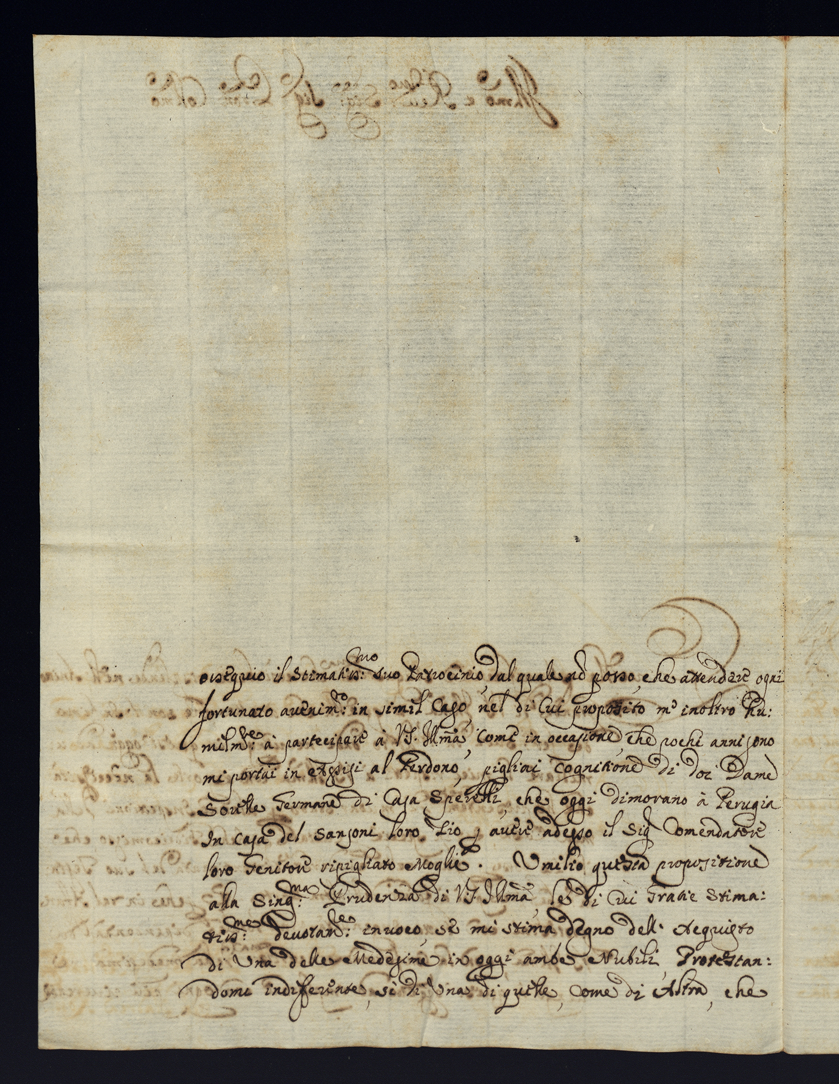 ossequio il stimatis:mo suo Patrocinio dal quale nõ posso che attendere ogni
fortunato avenim:to in simil Caso, nel di cui proposito m'inoltro hu:
milm:te à partecipare à V.S. Illma, come in occasione, che pochi anni sono
mi portai in Assisi al Perdono, pigliai Cognitione di doi Dame
Sorelle Germane di Casa Sperelli, che oggi dimorano à Perugia
In Casa del Sansoni loro Zio, p avere adesso il Sig. Comendatore
loro Genitore ripigliato Moglie. Umilio questa propositione
alla Sing:ma Prudenza di V.S. Illma, le di cui Gratie stima:
tis:me devotam:te invoco, se mi stima degno dell'Acquisto
di Una delle Medesime in oggi ambe Nubili, Protestan:
domi indifferente, si di Una di quelle, come di Altra, che